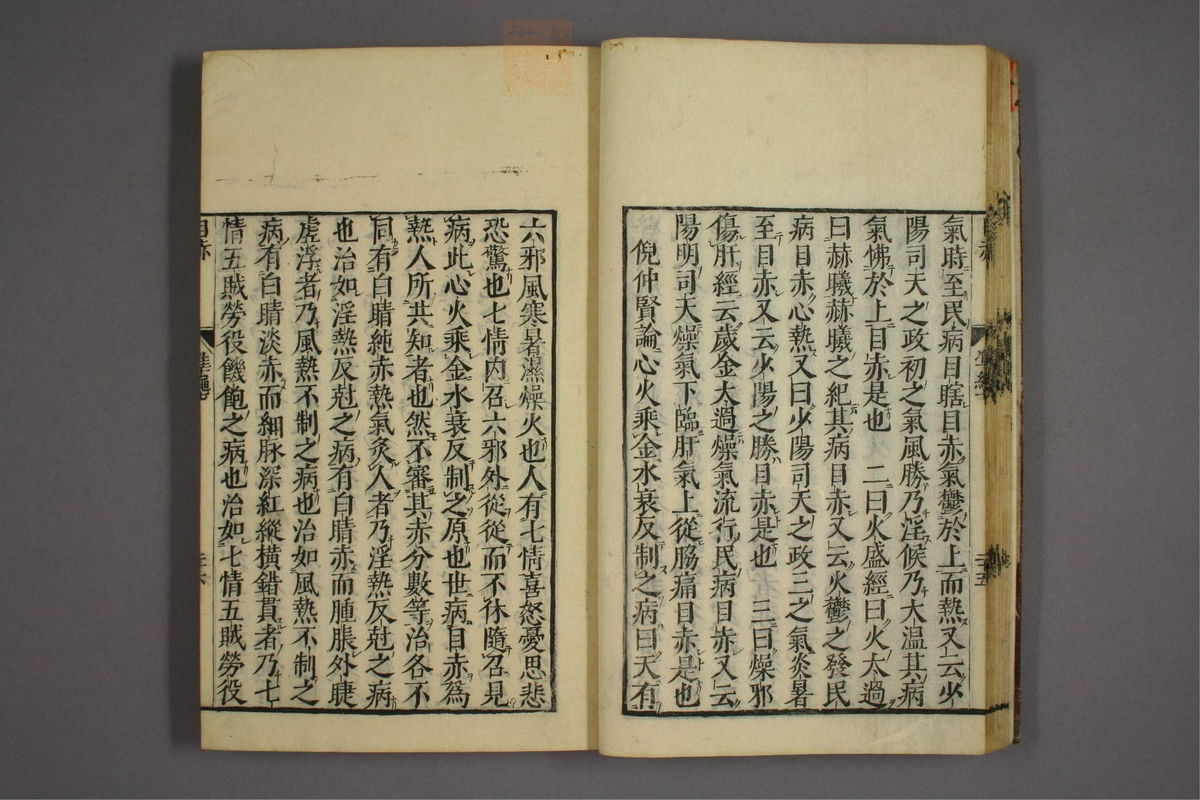 氣時至民病目瞎目赤氣鬱於上而熱又云少
陽司天之政初之氣風勝乃淫候乃大温其病
氣怫於上目赤是也　二曰火盛經曰火太過
曰赫曦赫曦之紀其病目赤又云火鬱之發民
病目赤心熱又曰少陽司天之政三之氣炎暑
至目赤又云少陽之勝目赤是也　三曰燥邪
傷肝經云歲金太過燥氣流行民病目赤又云
陽明司天燥氣下臨肝氣上從脇痛目赤是也
倪仲賢論心火乘金水衰反制之病曰天有
六邪風寒暑濕燥火也人有七情喜怒憂思悲
恐驚也七情内召六邪外從從而不休隨召見
病此心火乘金水衰反制之原也世病目赤爲
熱人所共知者也然不審其赤分數等治各不
同有白睛純赤熱氣灸人者乃淫熱反尅之病
也治如淫熱反尅之病有白睛赤而腫脹外睫
虚浮者乃風熱不制之病也治如風熱不制之
病有白睛淡赤而細脉深紅縱横錯貫者乃七
情五賊勞役饑飽之病也治如七情五賊勞役
目赤